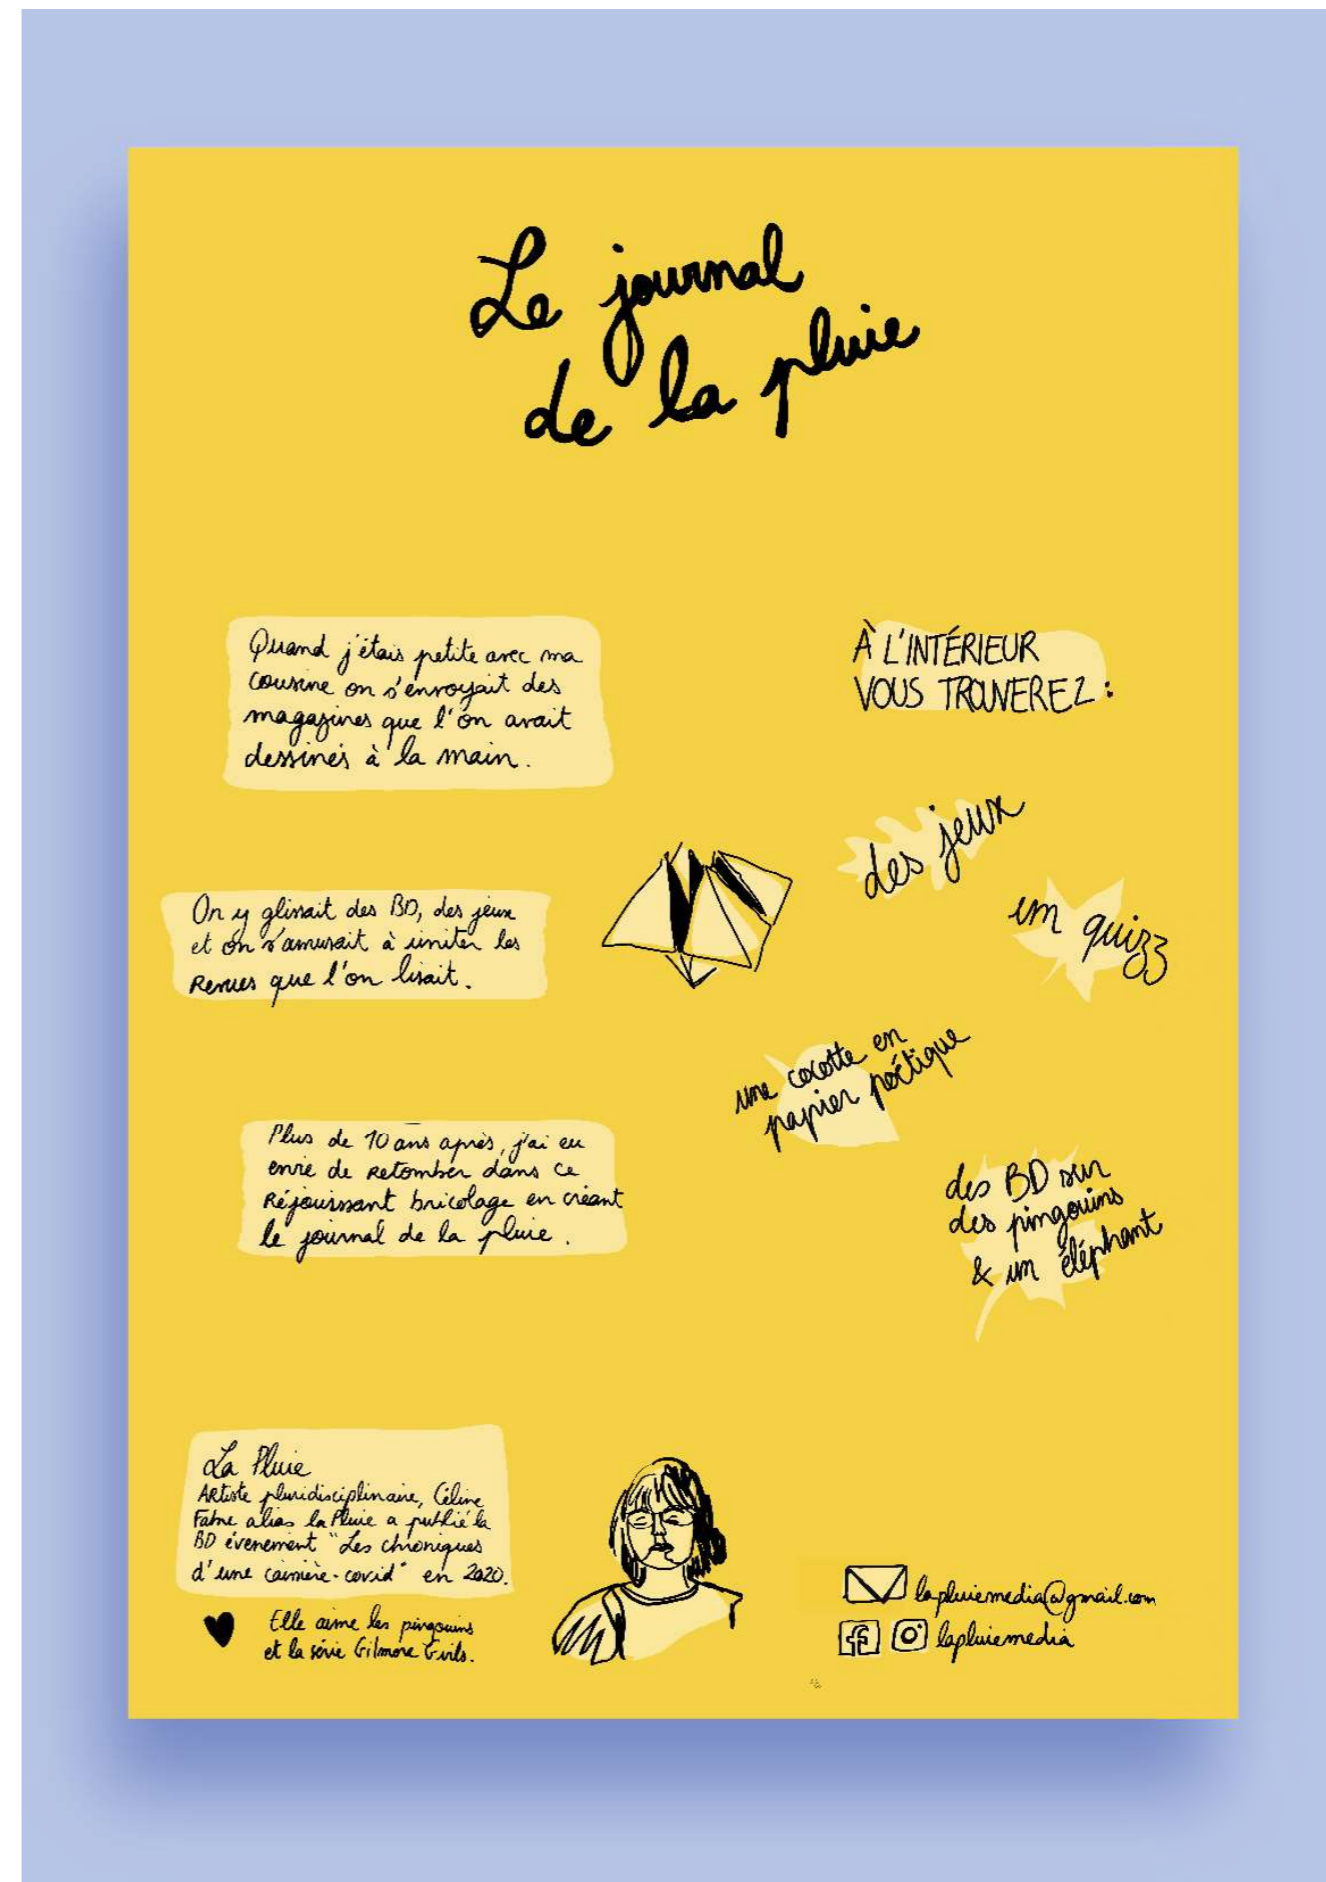 Le journal
de la pluie
Quand j'étais petite avec ma
cousine on s'envoyait des
magazines que l'on avait
dessinés à la main.
On y glissait des BD, des jeux
et on s'amusait à imiter les
Revues que l'on lisait.
Plus de 10 ans après, j'ai eu
envie de retomber dans ce
Réjouissant bricolage en créant
le journal de la pluie.
À L'INTÉRIEUR
VOUS TROUVEREZ :
des jeux
un quizz
une cocotte en
papier poétique
des BD sur
des pingouins
& un éléphant
La Pluie
Artiste pluridisciplinaire, Céline
Fabre alias la Pluie a publié la
BD évenement "Les chroniques
d'une caissière-covid" en 2020.
Elle aime les pingouins
et la série Gilmore Girls.
lapluiemedia@gmail.com
lapluiemedia